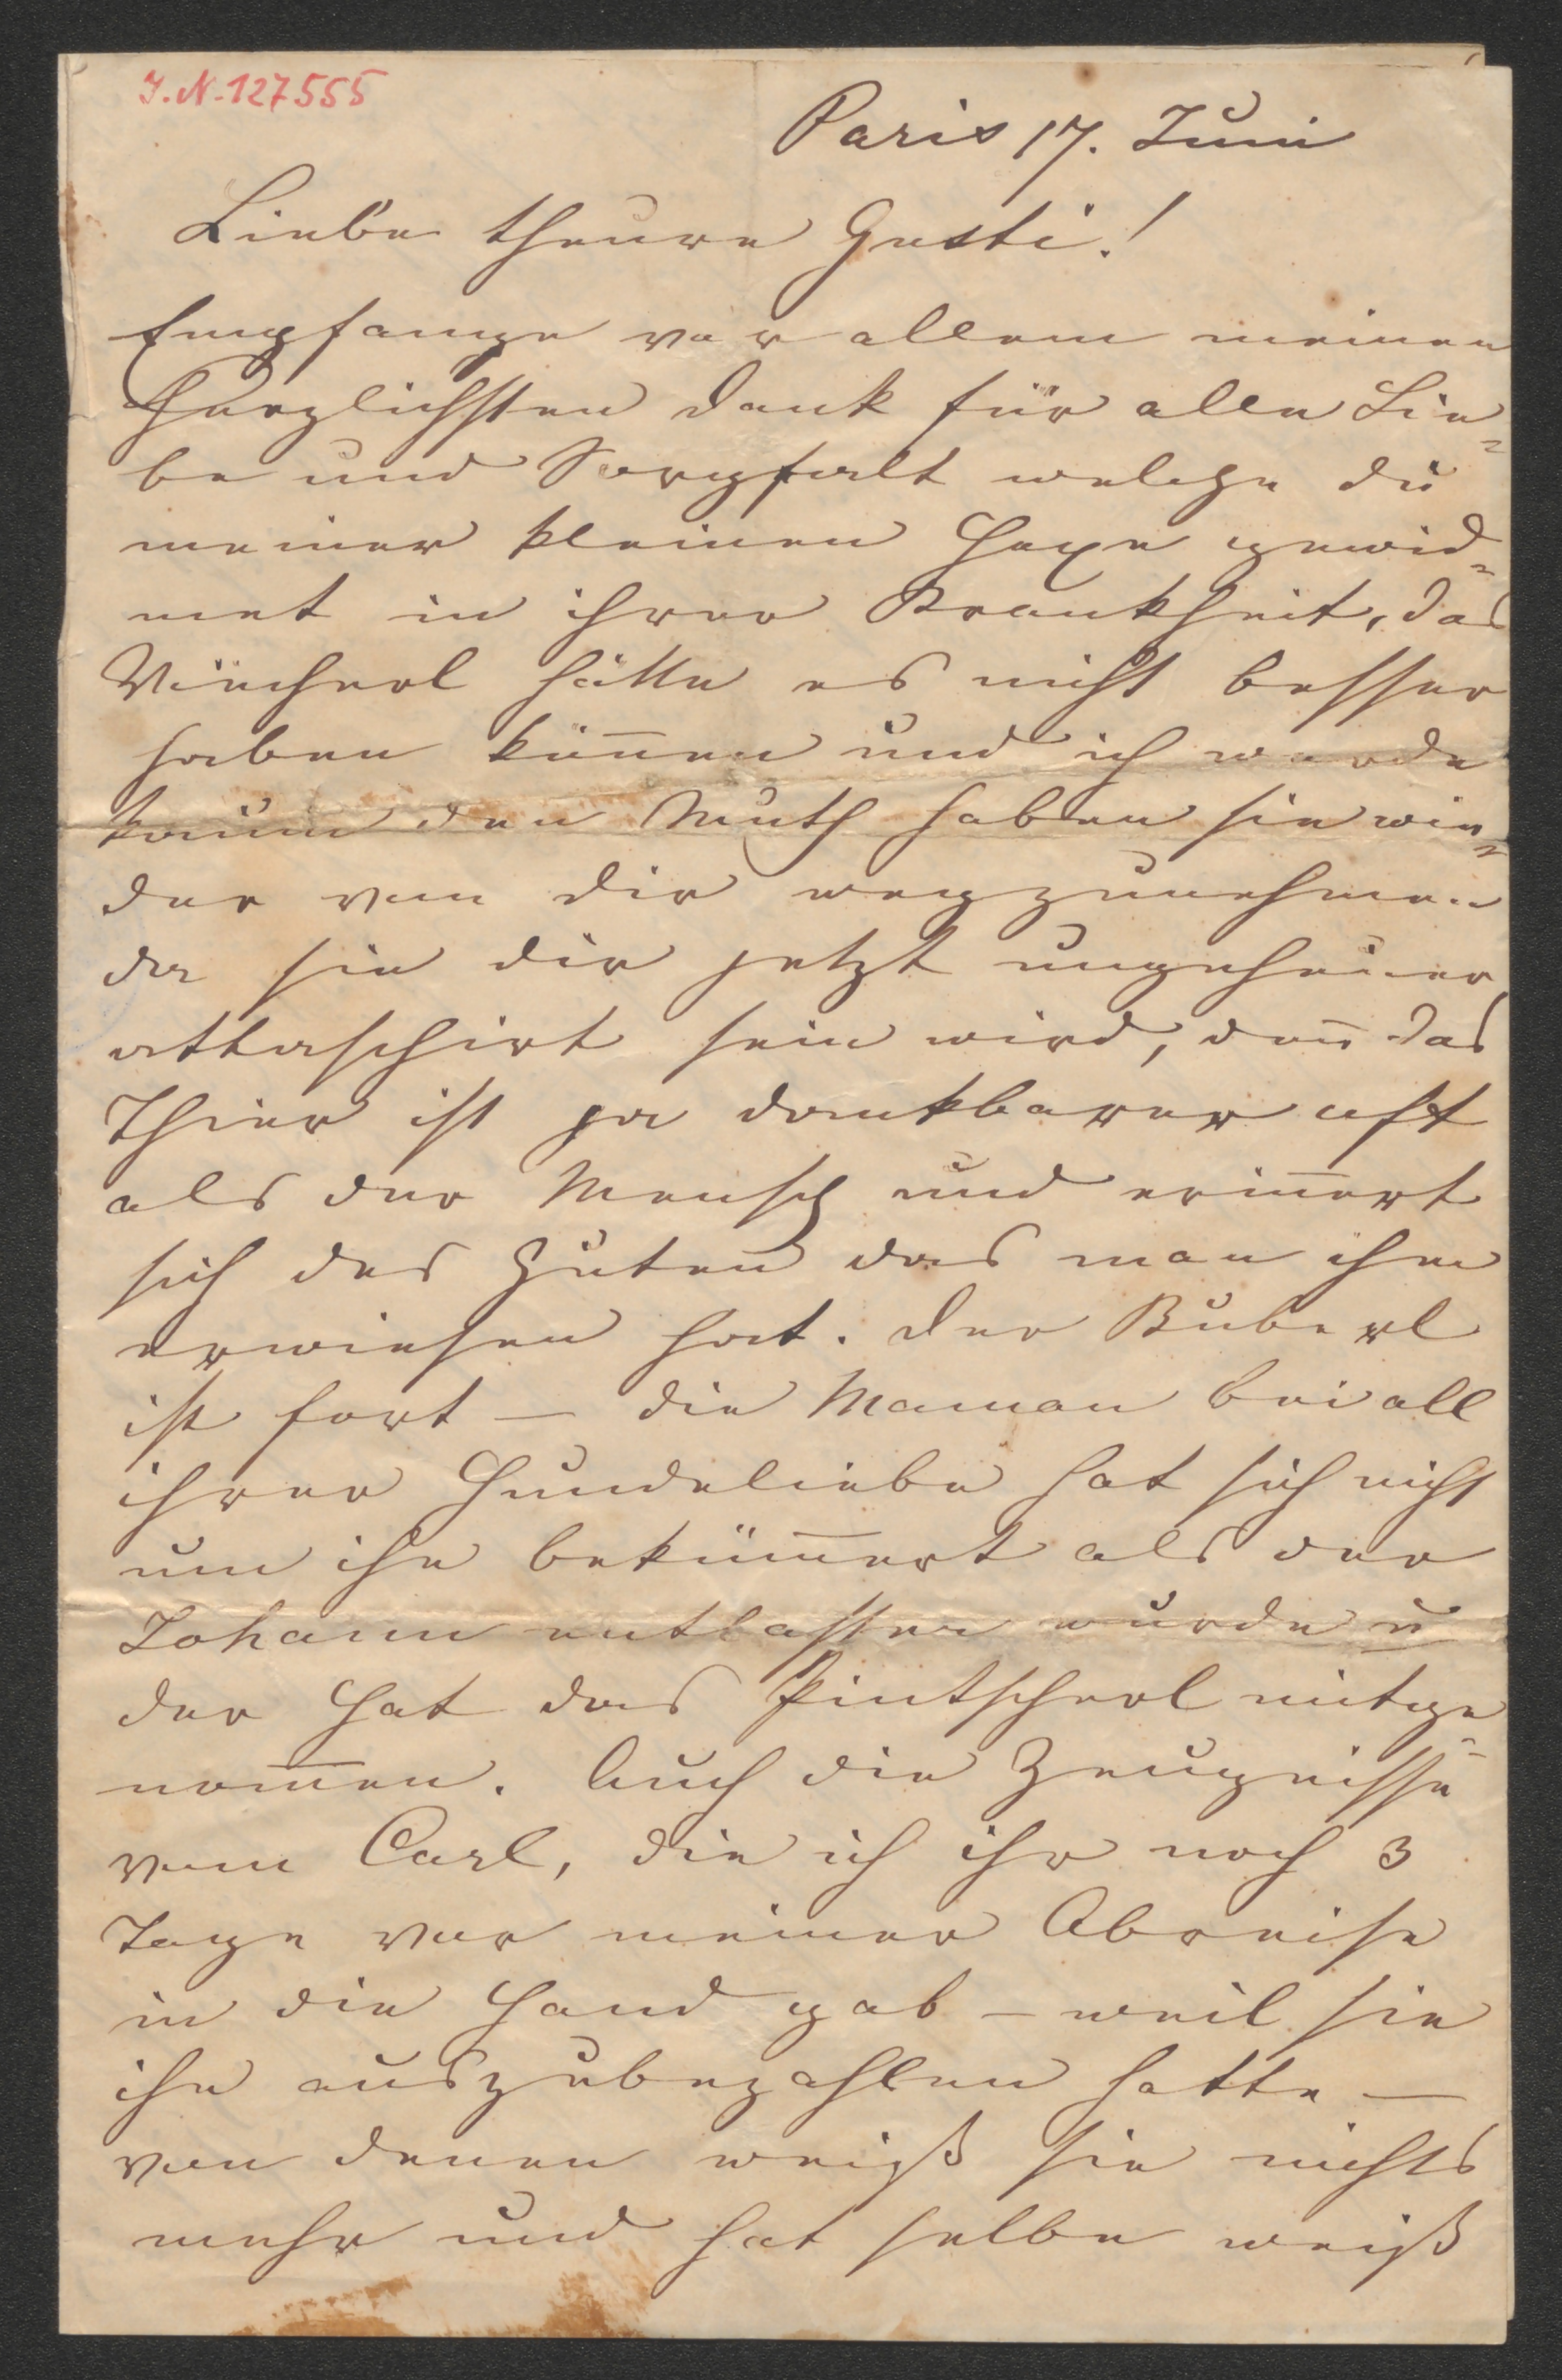 I.N. 127555
Paris 17. Juni
Liebe theure Gusti!
Empfange vor allem meinen
herzlichsten Dank für alle Lie=
be und Sorgfalt welche du
meiner kleinen Hexe gewid=
met in ihrer Krankheit, das
Viecherl hätte es nicht besser
haben können und ich werde
kaum den Muth haben sie wie=
der von dir wegzunehmen
da sie dir jetzt ungeheuer
attaschirt sein wird, den̄ das
Thier ist ja dankbarer oft
als der Mensch und erin̄ert
sich des Guten das man ihm
erwiesen hat. Der Buberl
ist fort – die Maman bei all
ihrer Hundeliebe hat sich nicht
um ihn beküm̄ert als der
Johann entlassen wurde u
der hat das Pintscherl mitge=
nom̄en. Auch die Zeugnisse
vom Carl, die ich ihr noch 3
Tage vor meiner Abreise
in die Hand gab – weil sie
ihn auszubezahlen hatte –
von denen weiß sie nichts
mehr und hat selbe weiß